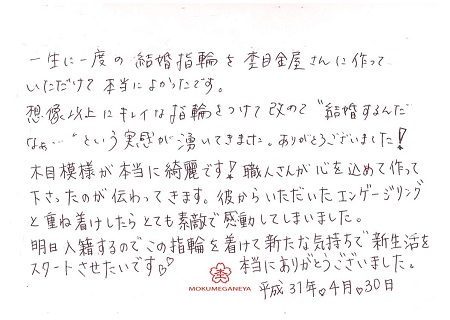 一生に一度の結婚指輪を杢目金屋さんに作って
いただけて本当によかったです。
想像以上にキレイな指輪をつけて改めて"結婚するんだ
なぁ…"という実感が湧いてきました。ありがとうございました!
木目模様が本当に綺麗です!職人さんが心を込めて作って
下さったのが伝わってきます。彼からいただいたエンゲージリング
と重ね着けしたらとても素敵で感動してしまいました。
明日入籍するのでこの指輪を着けて新たな気持ちで新生活を
スタートさせたいです♡♡
本当にありがとうございました。
MOKUMEGANEYA
平成31年.4月.30日